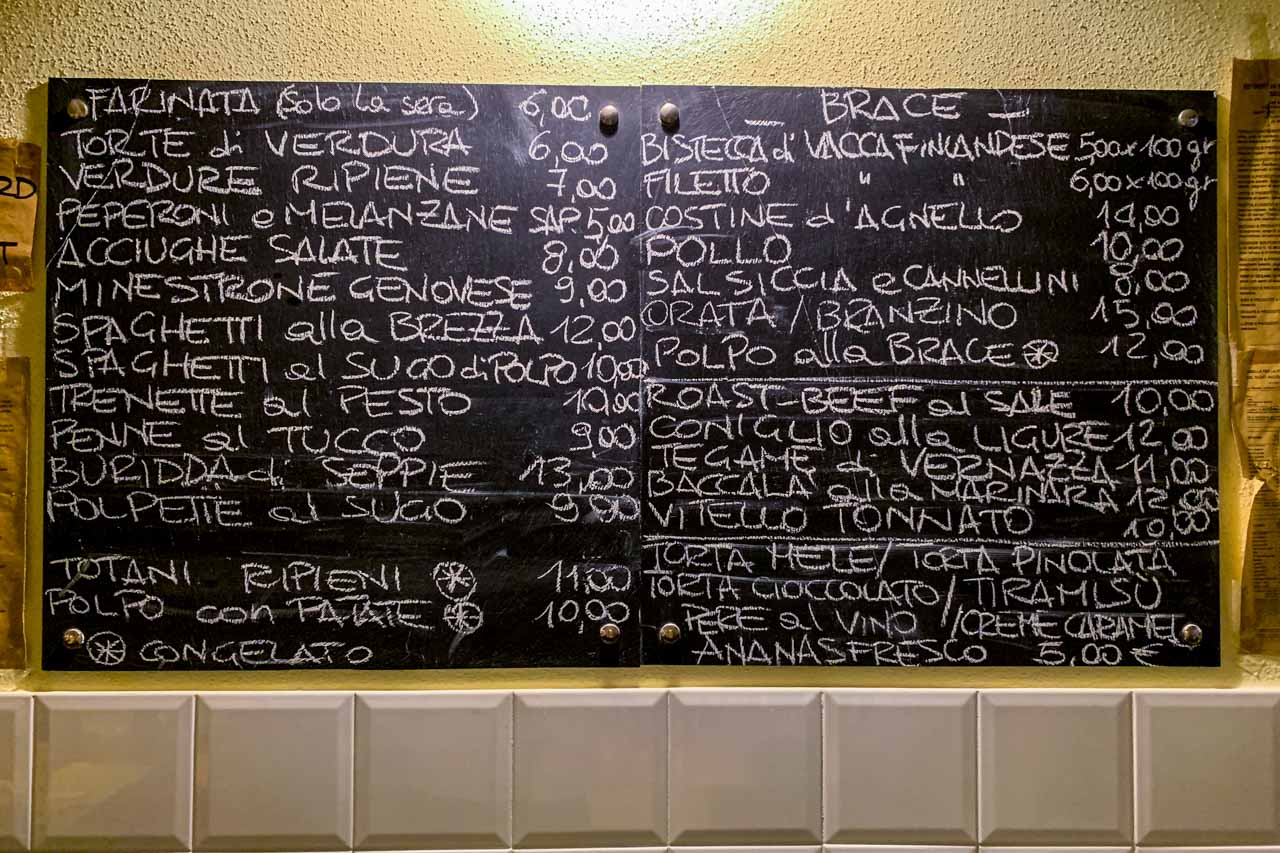 FARINATA (solo la sera) 6,00
TORTE di VERDURA 6,00
VERDURE RIPIENE 7,00
PEPERONI e MELANZANE SAP. 5,00
ACCIUGHE SALATE 8,00
MINESTRONE GENOVESE 9,00
SPAGHETTI alla BREZZA 12,00
SPAGHETTI al SUGO di POLPO 10,00
TRENETTE al PESTO 10,00
PENNE al TUCCO 9,00
BURIDDA di SEPPIE 13,00
POLPETTE al SUGO 9,00
TOTANI RIPIENI ⊛ 11,00
POLPO con PATATE ⊛ 10,00
⊛ CONGELATO
BRACE
BISTECCA di VACCA FINLANDESE 5,00 x 100 gr
FILETTO " " 6,00 x 100 gr
COSTINE d'AGNELLO 14,00
POLLO 10,00
SALSICCIA e CANNELLINI 8,00
ORATA / BRANZINO 15,00
POLPO alla BRACE ⊛ 12,00
ROAST-BEEF al SALE 10,00
CONIGLIO alla LIGURE 12,00
TEGAME di VERNAZZA 11,00
BACCALA alla MARINARA 12,00
VITELLO TONNATO 10,00
TORTA MELE / TORTA PINOLATA
TORTA CIOCCOLATO / TIRAMISÙ
PERE al VINO // CREME CARAMEL
ANANAS FRESCO 5,00 €
RD
T